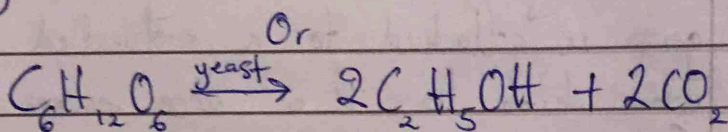 Or
C₆H₁₂O₆ yeast → 2C₂H₅OH + 2CO₂